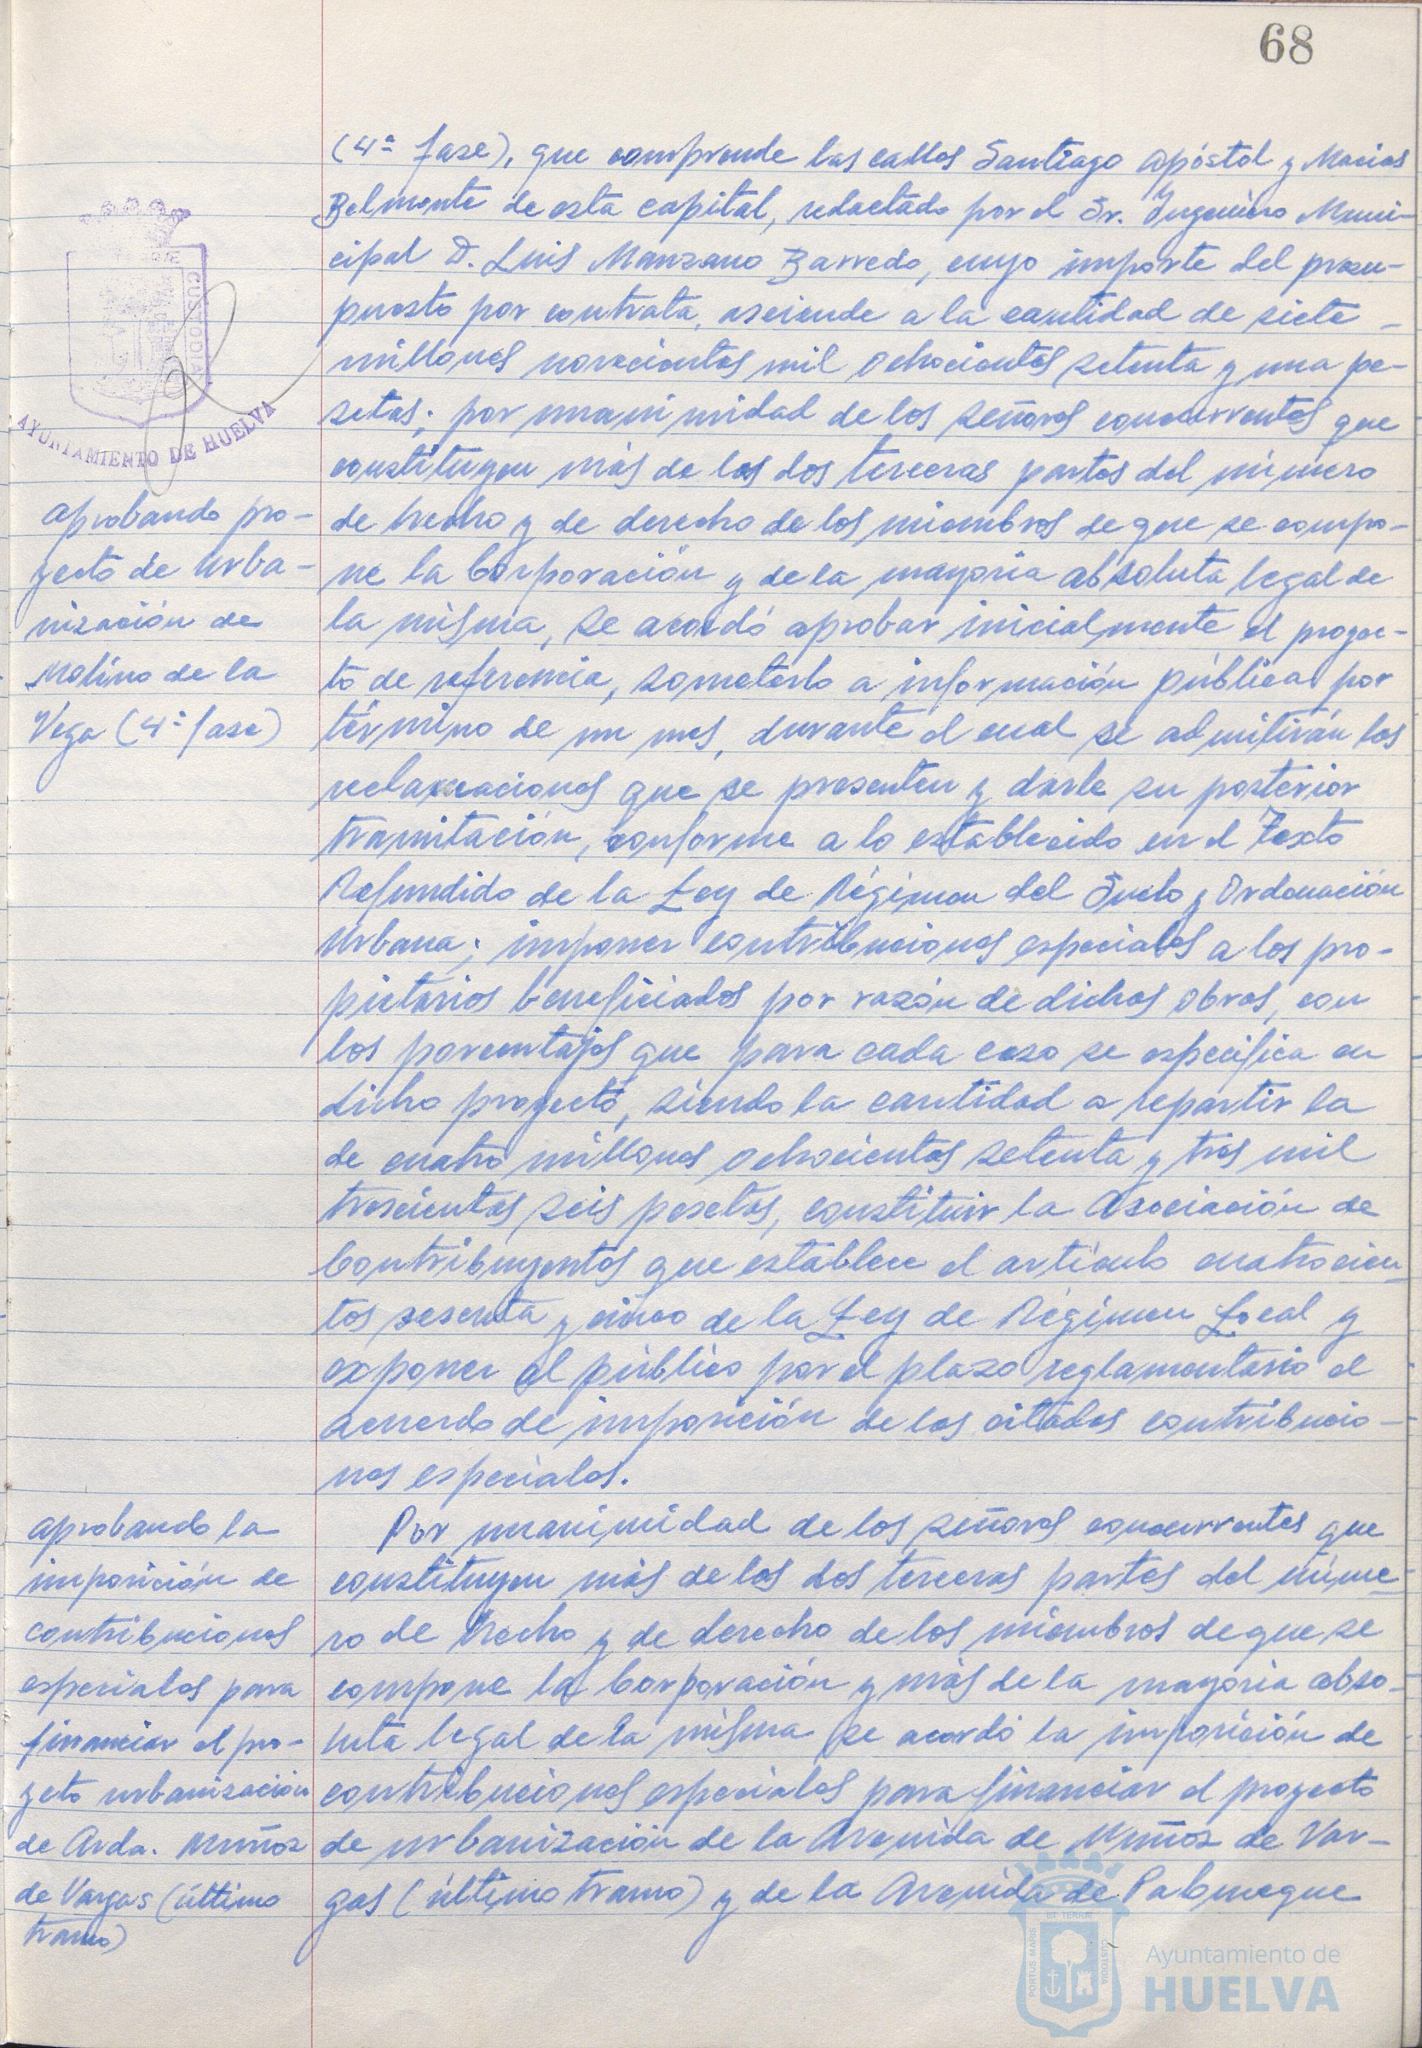 68
(4ª fase), que comprende las calles Santiago Apóstol y Macias
Belmonte de esta capital, redactado por el Sr. Ingeniero Muni-
cipal D. Luis Manzano Barredo, cuyo importe del presu-
puesto por contrata, asciende a la cantidad de siete
millones novecientos mil ochocientas setenta y una pe-
setas; por unanimidad de los señores concurrentes que
constituyen más de las dos terceras partes del número
de hecho y de derecho de los miembros de que se compo-
ne la Corporación y de la mayoria absoluta legal de
la misma, se acordó aprobar inicialmente el proyec-
to de referencia, someterlo a información pública por
término de un mes, durante el cual se admitirán las
reclamaciones que se presenten y darle su posterior
tramitación, conforme a lo establecido en el Texto
Refundido de la Ley de Régimen del Suelo y Ordenación
Urbana; imponer contribuciones especiales a los pro-
pietarios beneficiados por razón de dichas obras, con
los porcentajes que para cada caso se especifica en
dicho proyecto, siendo la cantidad a repartir la
de cuatro millones ochocientas setenta y tres mil
trescientas seis pesetas, constituir la Asociación de
Contribuyentes que establece el artículo cuatrocien-
tos sesenta y cinco de la Ley de Régimen Local y
exponer al público por el plazo reglamentario el
acuerdo de imposición de las citadas contribucio-
nes especiales.
Por unanimidad de los señores concurrentes que
constituyen más de las dos terceras partes del núme-
ro de hecho y de derecho de los miembros de que se
compone la Corporación y más de la mayoria abso-
luta legal de la misma se acordó la imposición de
contribuciones especiales para financiar el proyecto
de urbanización de la Avenida de Muñoz de Var-
gas (último tramo) y de la Avenida de Palomeque
CUSTODIA
AYUNTAMIENTO DE HUELVA
aprobando pro-
yecto de urba-
nización de
Molino de la
Vega (4ª fase)
aprobando la
imposición de
contribuciones
especiales para
financiar el pro-
yecto urbanización
de Avda. Muñoz
de Vargas (último
tramo)
PORTUS MARIS
ET TERRAE
CUSTODIA
Ayuntamiento de
HUELVA